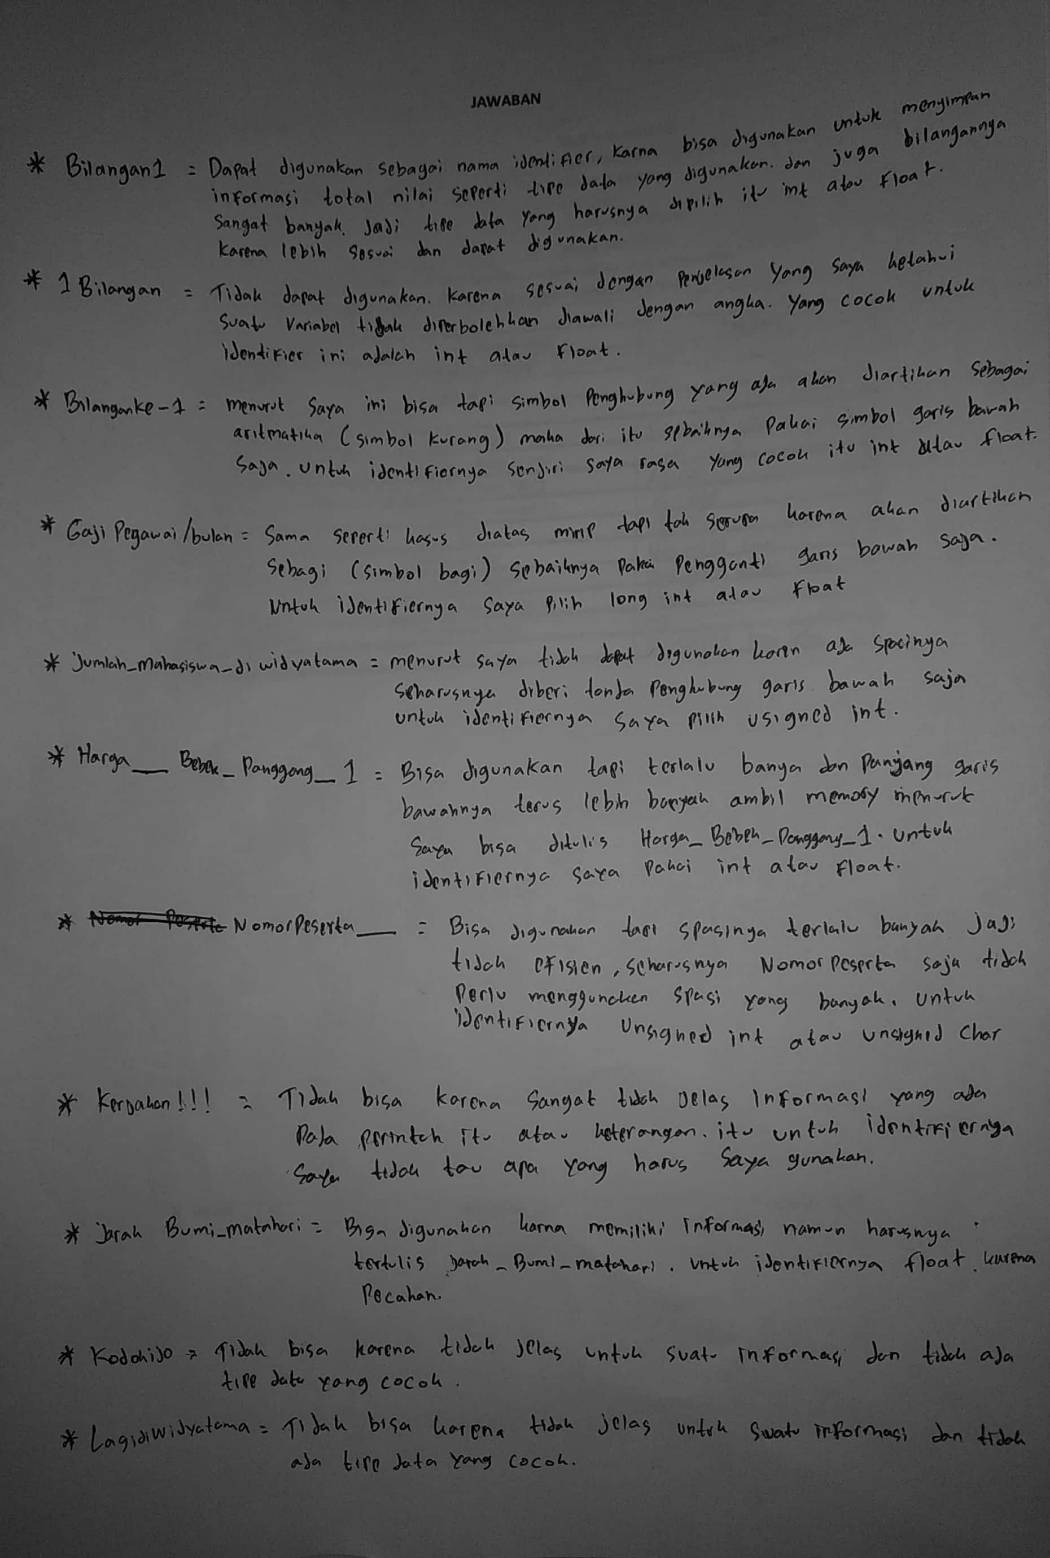 JAWABAN
* Bilangan1 = Dapat digunakan sebagai nama identifier, karna bisa digunakan untuk menyimpan
informasi total nilai seperti tipe data yang digunakan. dan juga bilangannya
sangat banyak. Jadi tipe data yang harusnya dipilih itu int atau float.
karena lebih sesuai dan dapat digunakan.
* 1 Bilangan = Tidak dapat digunakan. karena sesuai dengan penjelasan yang saya ketahui
suatu variabel tidak diperbolehkan diawali dengan angka. yang cocok untuk
identifier ini adalah int atau float.
* Bilanganke-1 = menurut saya ini bisa tapi simbol penghubung yang ada akan diartikan sebagai
aritmatika (simbol kurang) maka dari itu sebaiknya pakai simbol garis bawah
saja. untuk identifiernya sendiri saya rasa yang cocok itu int atau float.
* Gaji Pegawai/bulan = Sama seperti kasus diatas mirip tapi tak serupa karena akan diartikan
sebagi (simbol bagi) sebaiknya pakai pengganti garis bawah saja.
untuk identifiernya saya pilih long int atau float
* Jumlah_mahasiswa_di widyatama = menurut saya tidak dapat digunakan karen ada spacinya
seharusnya diberi tanda penghubung garis bawah saja
untuk identifiernya saya pilih usigned int.
* Harga__ Bebek_Panggang_1 = Bisa digunakan tapi terlalu banya dan panjang garis
bawahnya terus lebih banyak ambil memory menurut
saya bisa ditulis Harga_Bebek_Panggang_1. untuk
identifiernya saya pakai int atau float.
* NomorPeserta__ = Bisa digunakan tapi spasinya terlalu banyak jadi
tidak efisien, seharusnya NomorPeserta saja tidak
perlu menggunakan spasi yang banyak. untuk
identifiernya Unsigned int atau unsigned char
* Kerjakan!!! = Tidak bisa karena sangat tidak jelas informasi yang ada
pada perintah itu atau keterangan. itu untuk identifiernya
saya tidak tau apa yang harus saya gunakan.
* jarak Bumi_matahari = Bisa digunakan karna memiliki informasi namun harusnya
tertulis jarak_Bumi_matahari. untuk identifiernya float karena
pecahan.
* Kodohijo = Tidak bisa karena tidak jelas untuk suatu informasi dan tidak ada
tipe data yang cocok.
* Lagidiwidyatama = Tidak bisa karena tidak jelas untuk suatu informasi dan tidak
ada tipe data yang cocok.